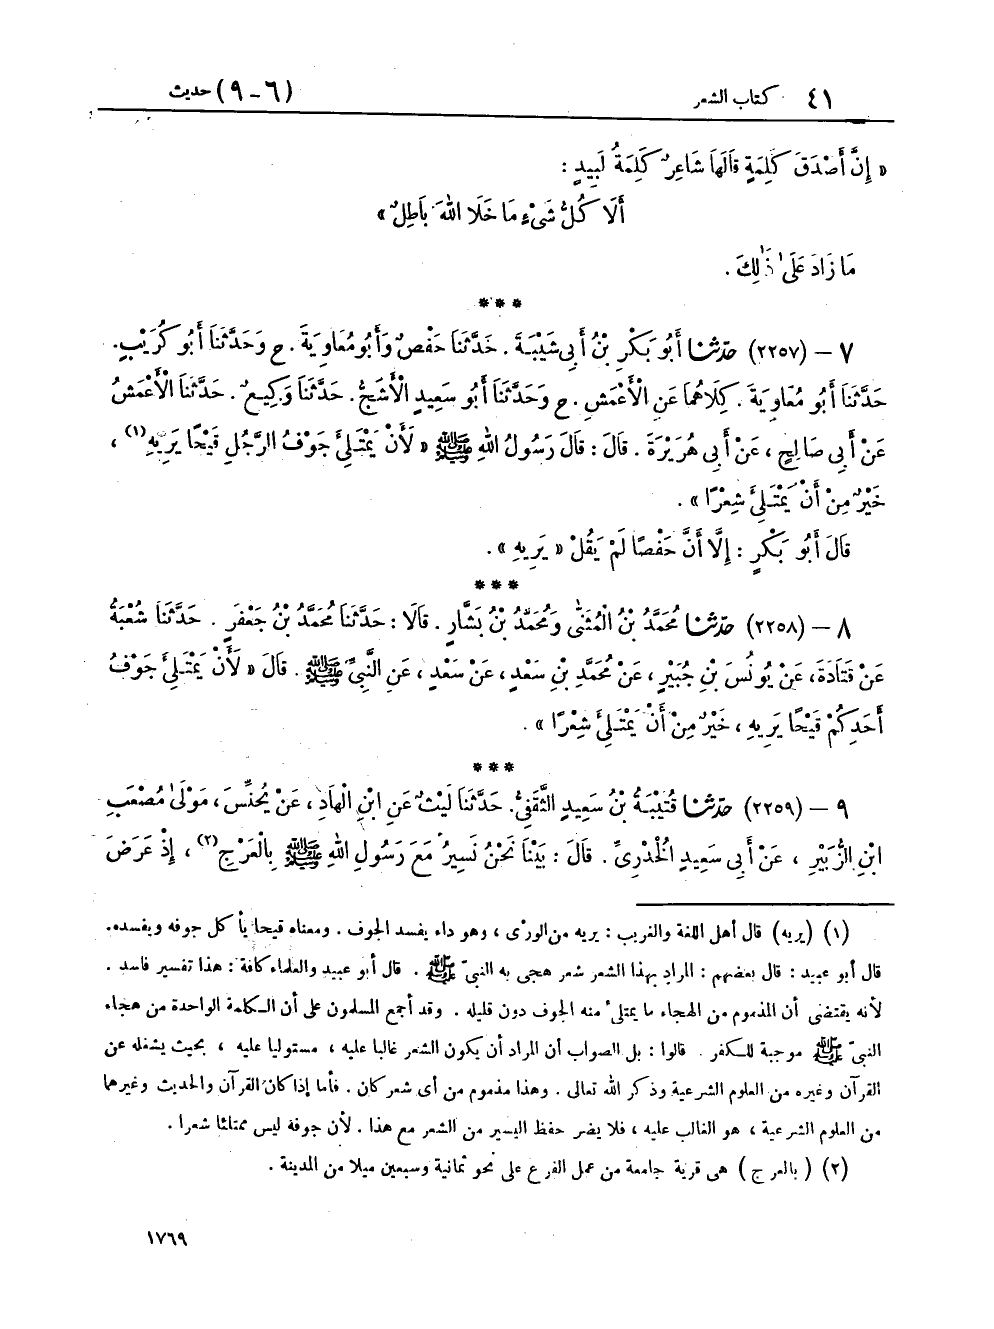 ٤١ كتاب الشعر (٦ - ٩) حديث
« إِنَّ أَصْدَقَ كَلِمَةٍ قَالَهَا شَاعِرٌ كَلِمَةُ لَبِيدٍ :
أَلَا كُلُّ شَىْءٍ مَا خَلَا اللهَ بَاطِلٌ »
مَا زَادَ عَلَى ذَٰلِكَ .
***
٧ – (٢٢٥٧) حَدَّثَنَا أَبُو بَكْرِ بْنُ أَبِى شَيْبَةَ . حَدَّثَنَا حَفْصٌ وَأَبُو مُعَاوِيَةَ . ح وَحَدَّثَنَا أَبُو كُرَيْبٍ .
حَدَّثَنَا أَبُو مُعَاوِيَةَ . كِلَاهُمَا عَنِ الْأَعْمَشِ . ح وَحَدَّثَنَا أَبُو سَعِيدٍ الْأَشَجُّ . حَدَّثَنَا وَكِيعٌ . حَدَّثَنَا الْأَعْمَشُ
عَنْ أَبِى صَالِحٍ ، عَنْ أَبِى هُرَيْرَةَ . قَالَ : قَالَ رَسُولُ اللهِ ﷺ « لَأَنْ يَمْتَلِئَ جَوْفُ الرَّجُلِ قَيْحًا يَرِيهِ(١) ،
خَيْرٌ مِنْ أَنْ يَمْتَلِئَ شِعْرًا » .
قَالَ أَبُو بَكْرٍ : إِلَّا أَنَّ حَفْصًا لَمْ يَقُلْ « يَرِيهِ » .
***
٨ – (٢٢٥٨) حَدَّثَنَا مُحَمَّدُ بْنُ الْمُثَنَّى وَمُحَمَّدُ بْنُ بَشَّارٍ . قَالَا : حَدَّثَنَا مُحَمَّدُ بْنُ جَعْفَرٍ . حَدَّثَنَا شُعْبَةُ
عَنْ قَتَادَةَ ، عَنْ يُونُسَ بْنِ جُبَيْرٍ ، عَنْ مُحَمَّدِ بْنِ سَعْدٍ ، عَنْ سَعْدٍ ، عَنِ النَّبِىِّ ﷺ . قَالَ « لَأَنْ يَمْتَلِئَ جَوْفُ
أَحَدِكُمْ قَيْحًا يَرِيهِ ، خَيْرٌ مِنْ أَنْ يَمْتَلِئَ شِعْرًا » .
***
٩ – (٢٢٥٩) حَدَّثَنَا قُتَيْبَةُ بْنُ سَعِيدٍ الثَّقَفِىُّ . حَدَّثَنَا لَيْثٌ عَنِ ابْنِ الْهَادِ ، عَنْ يُحَنِّسَ ، مَوْلَىٰ مُصْعَبِ
ابْنِ الزُّبَيْرِ ، عَنْ أَبِى سَعِيدٍ الْخُدْرِىِّ . قَالَ : بَيْنَا نَحْنُ نَسِيرُ مَعَ رَسُولِ اللهِ ﷺ بِالْعَرْجِ(٢) ، إِذْ عَرَضَ
(١) (يريه) قال أهل اللغة والغريب : يريه من الورْى ، وهو داء يفسد الجوف . ومعناه قيحا يأكل جوفه ويفسده .
قال أبو عبيد : قال بعضهم : المراد بهذا الشعر شعر هجى به النبىّ ﷺ . قال أبو عبيد والعلماء كافة : هذا تفسير فاسد .
لأنه يقتضى أن المذموم من الهجاء ما يمتلئ منه الجوف دون قليله . وقد أجمع المسلمون على أن الكلمة الواحدة من هجاء
النبىّ ﷺ موجبة للكفر . قالوا : بل الصواب أن المراد أن يكون الشعر غالبا عليه ، مستوليا عليه ، بحيث يشغله عن
القرآن وغيره من العلوم الشرعية وذكر الله تعالى . وهذا مذموم من أى شعر كان . فأما إذا كان القرآن والحديث وغيرهما
من العلوم الشرعية ، هو الغالب عليه ، فلا يضر حفظ اليسير من الشعر مع هذا . لأن جوفه ليس ممتلئا شعرا .
(٢) ( بالعرج ) هى قرية جامعة من عمل الفرع على نحو ثمانية وسبعين ميلا من المدينة .
١٧٦٩